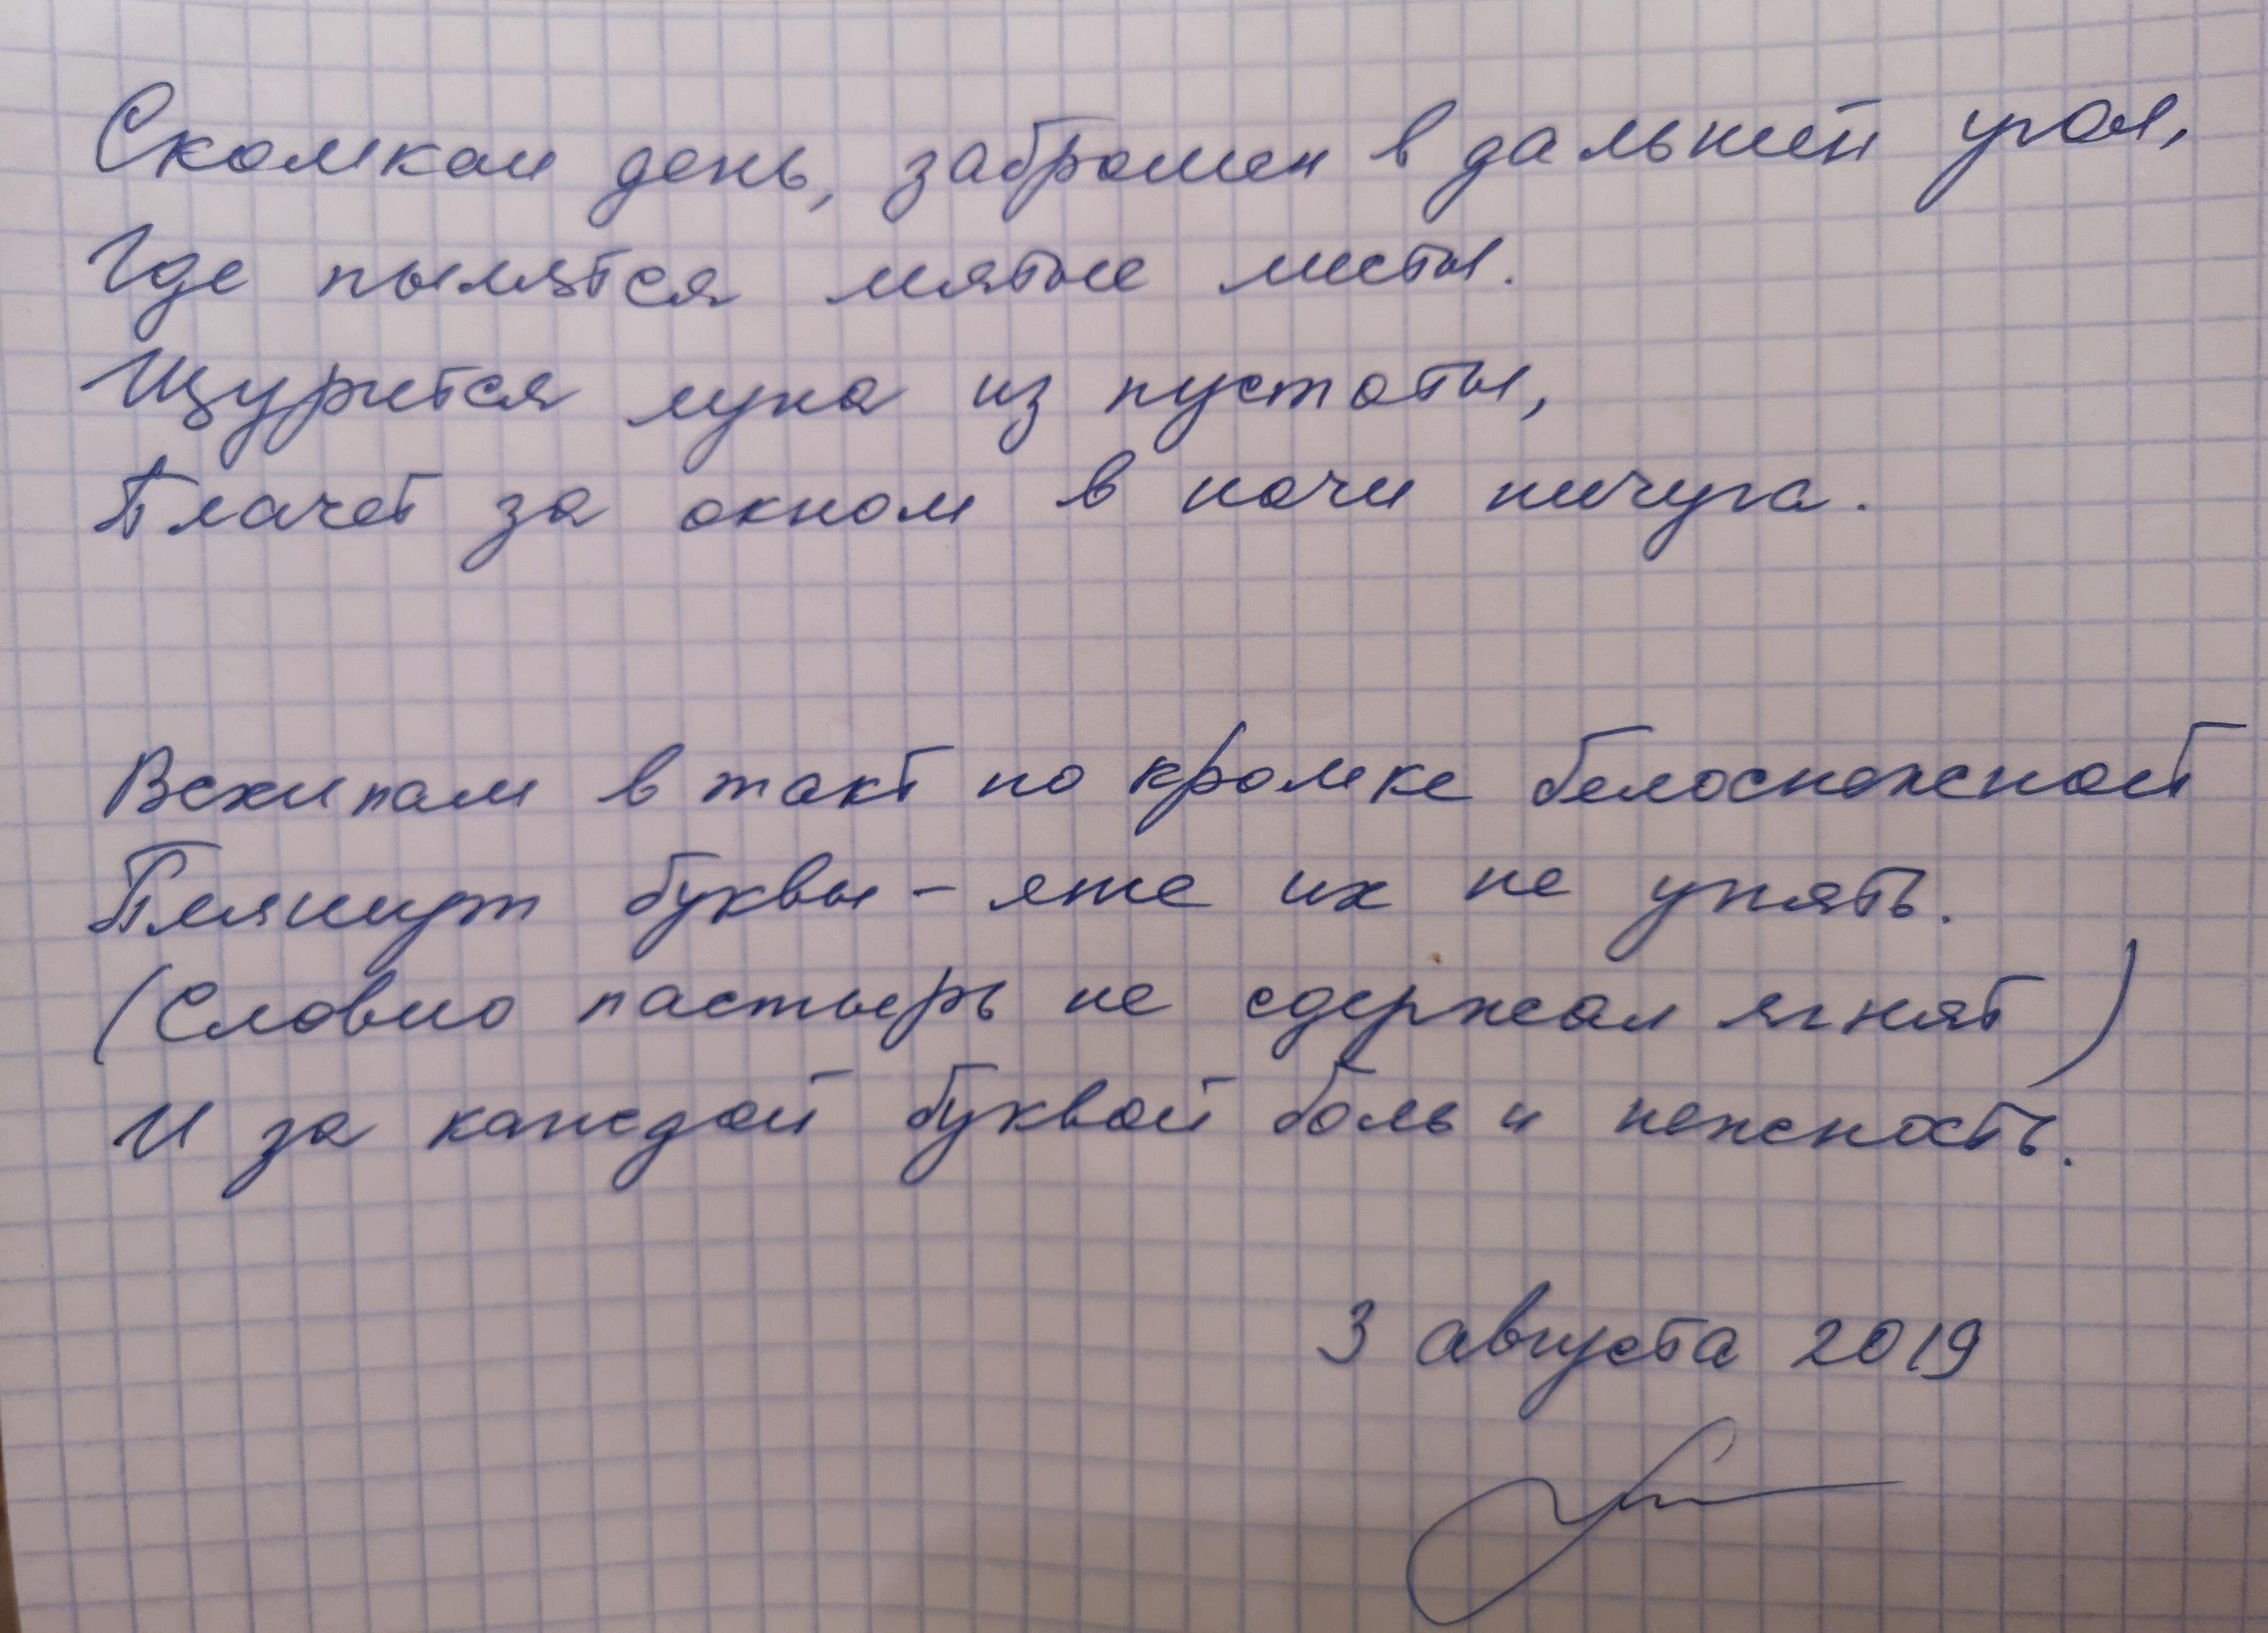 Скомкан день, заброшен в дальний угол,
Где пылятся мятые листы.
Щурится луна из пустоты,
Плачет за окном в ночи пичуга.
Всхлипам в такт по кромке белоснежной
Пляшут буквы – мне их не унять.
(Словно пастырь не сдержал ягнят)
И за каждой буквой боль и нежность.
3 августа 2019